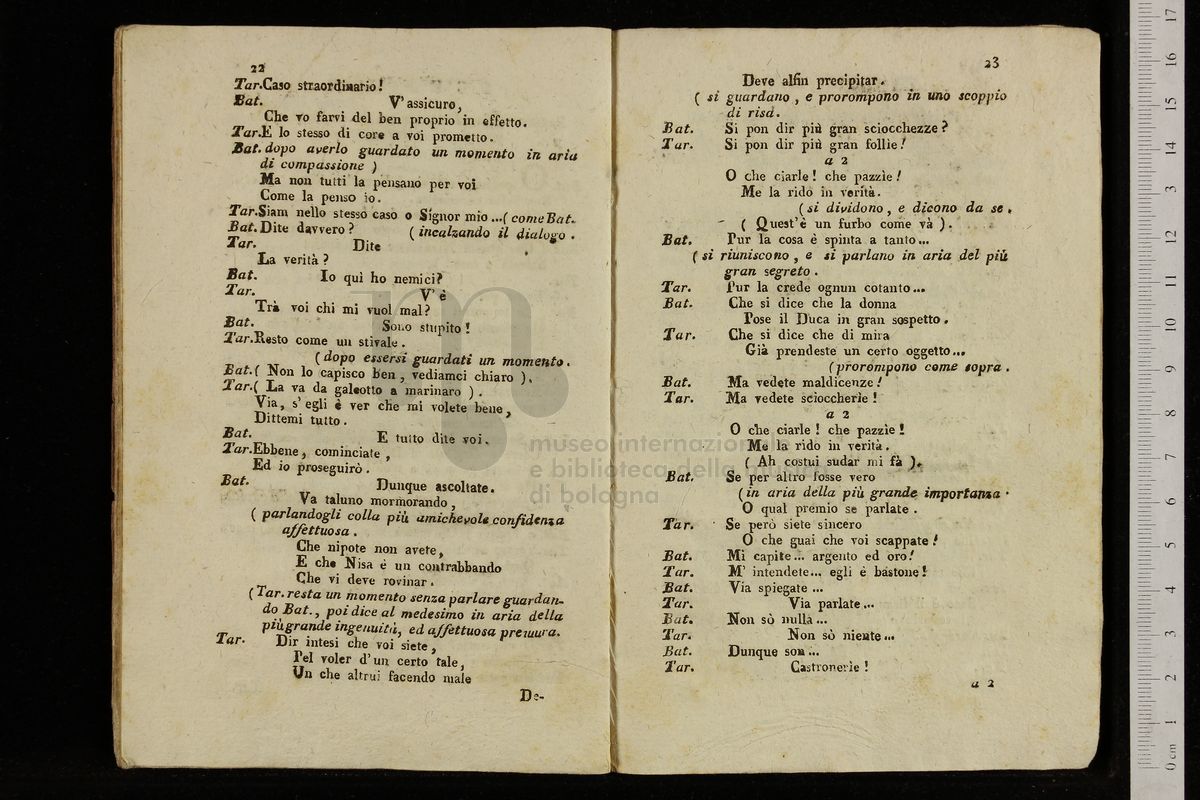 22
Tar.Caso straordinario!
Bat. V'assicuro,
Che vo farvi del ben proprio in effetto.
Tar.E lo stesso di core a voi prometto.
Bat. dopo averlo guardato un momento in aria
di compassione )
Ma non tutti la pensano per voi
Come la penso io.
Tar.Siam nello stesso caso o Signor mio ...( come Bat.
Bat. Dite davvero? ( incalzando il dialogo .
Tar. Dite
La verità ?
Bat. Io quì ho nemici?
Tar. V'è
Trà voi chi mi vuol mal?
Bat. Sono stupito !
Tar.Resto come un stivale .
( dopo essersi guardati un momento .
Bat. ( Non lo capisco ben , vediamci chiaro ).
Tar.( La va da galeotto a marinaro ) .
Via, s'egli è ver che mi volete bene,
Dittemi tutto .
Bat. E tutto dite voi.
Tar.Ebbene, cominciate ,
Ed io proseguirò .
Bat. Dunque ascoltate.
Va taluno mormorando ,
( parlandogli colla più amichevole confidenza
affettuosa .
Che nipote non avete,
E che Nisa é un contrabbando
Che vi deve rovinar .
( Tar. resta un momento senza parlare guardan-
do Bat. , poi dice al medesimo in aria della
più grande ingenuità, ed affettuosa premura.
Tar. Dir intesi che voi siete ,
Pel voler d'un certo tale,
Un che altrui facendo male
De-
23
Deve alfin precipitar .
( si guardano , e prorompono in uno scoppio
di risa.
Bat. Si pon dir più gran sciocchezze ?
Tar. Si pon dir più gran follìe !
a 2
O che ciarle ! che pazzìe !
Me la rido in verità.
( si dividono , e dicono da se .
( Quest'è un furbo come và ) .
Bat. Pur la cosa è spinta a tanto...
( si riuniscono , e si parlano in aria del più
gran segreto .
Tar. Pur la crede ognun cotanto ...
Bat. Che si dice che la donna
Pose il Duca in gran sospetto .
Tar. Che si dice che di mira
Già prendeste un certo oggetto...
( prorompono come sopra .
Bat. Ma vedete maldicenze !
Tar. Ma vedete scioccherìe !
a 2
O che ciarle ! che pazzìe !
Me la rido in verità .
( Ah costui sudar mi fà ).
Bat. Se per altro fosse vero
( in aria della più grande importanza .
O qual premio se parlate .
Tar. Se però siete sincero
O che guai che voi scappate !
Bat. Mi capite... argento ed oro!
Tar. M' intendete... egli é bastone !
Bat. Via spiegate ...
Tar. Via parlate...
Bat. Non sò nulla ...
Tar. Non sò niente ...
Bat. Dunque son ...
Tar. Castronerie !
a 2
museo internazionale
e biblioteca della musica
di bologna
0 cm 1 2 3 4 5 6 7 8 9 10 11 12 13 14 15 16 17